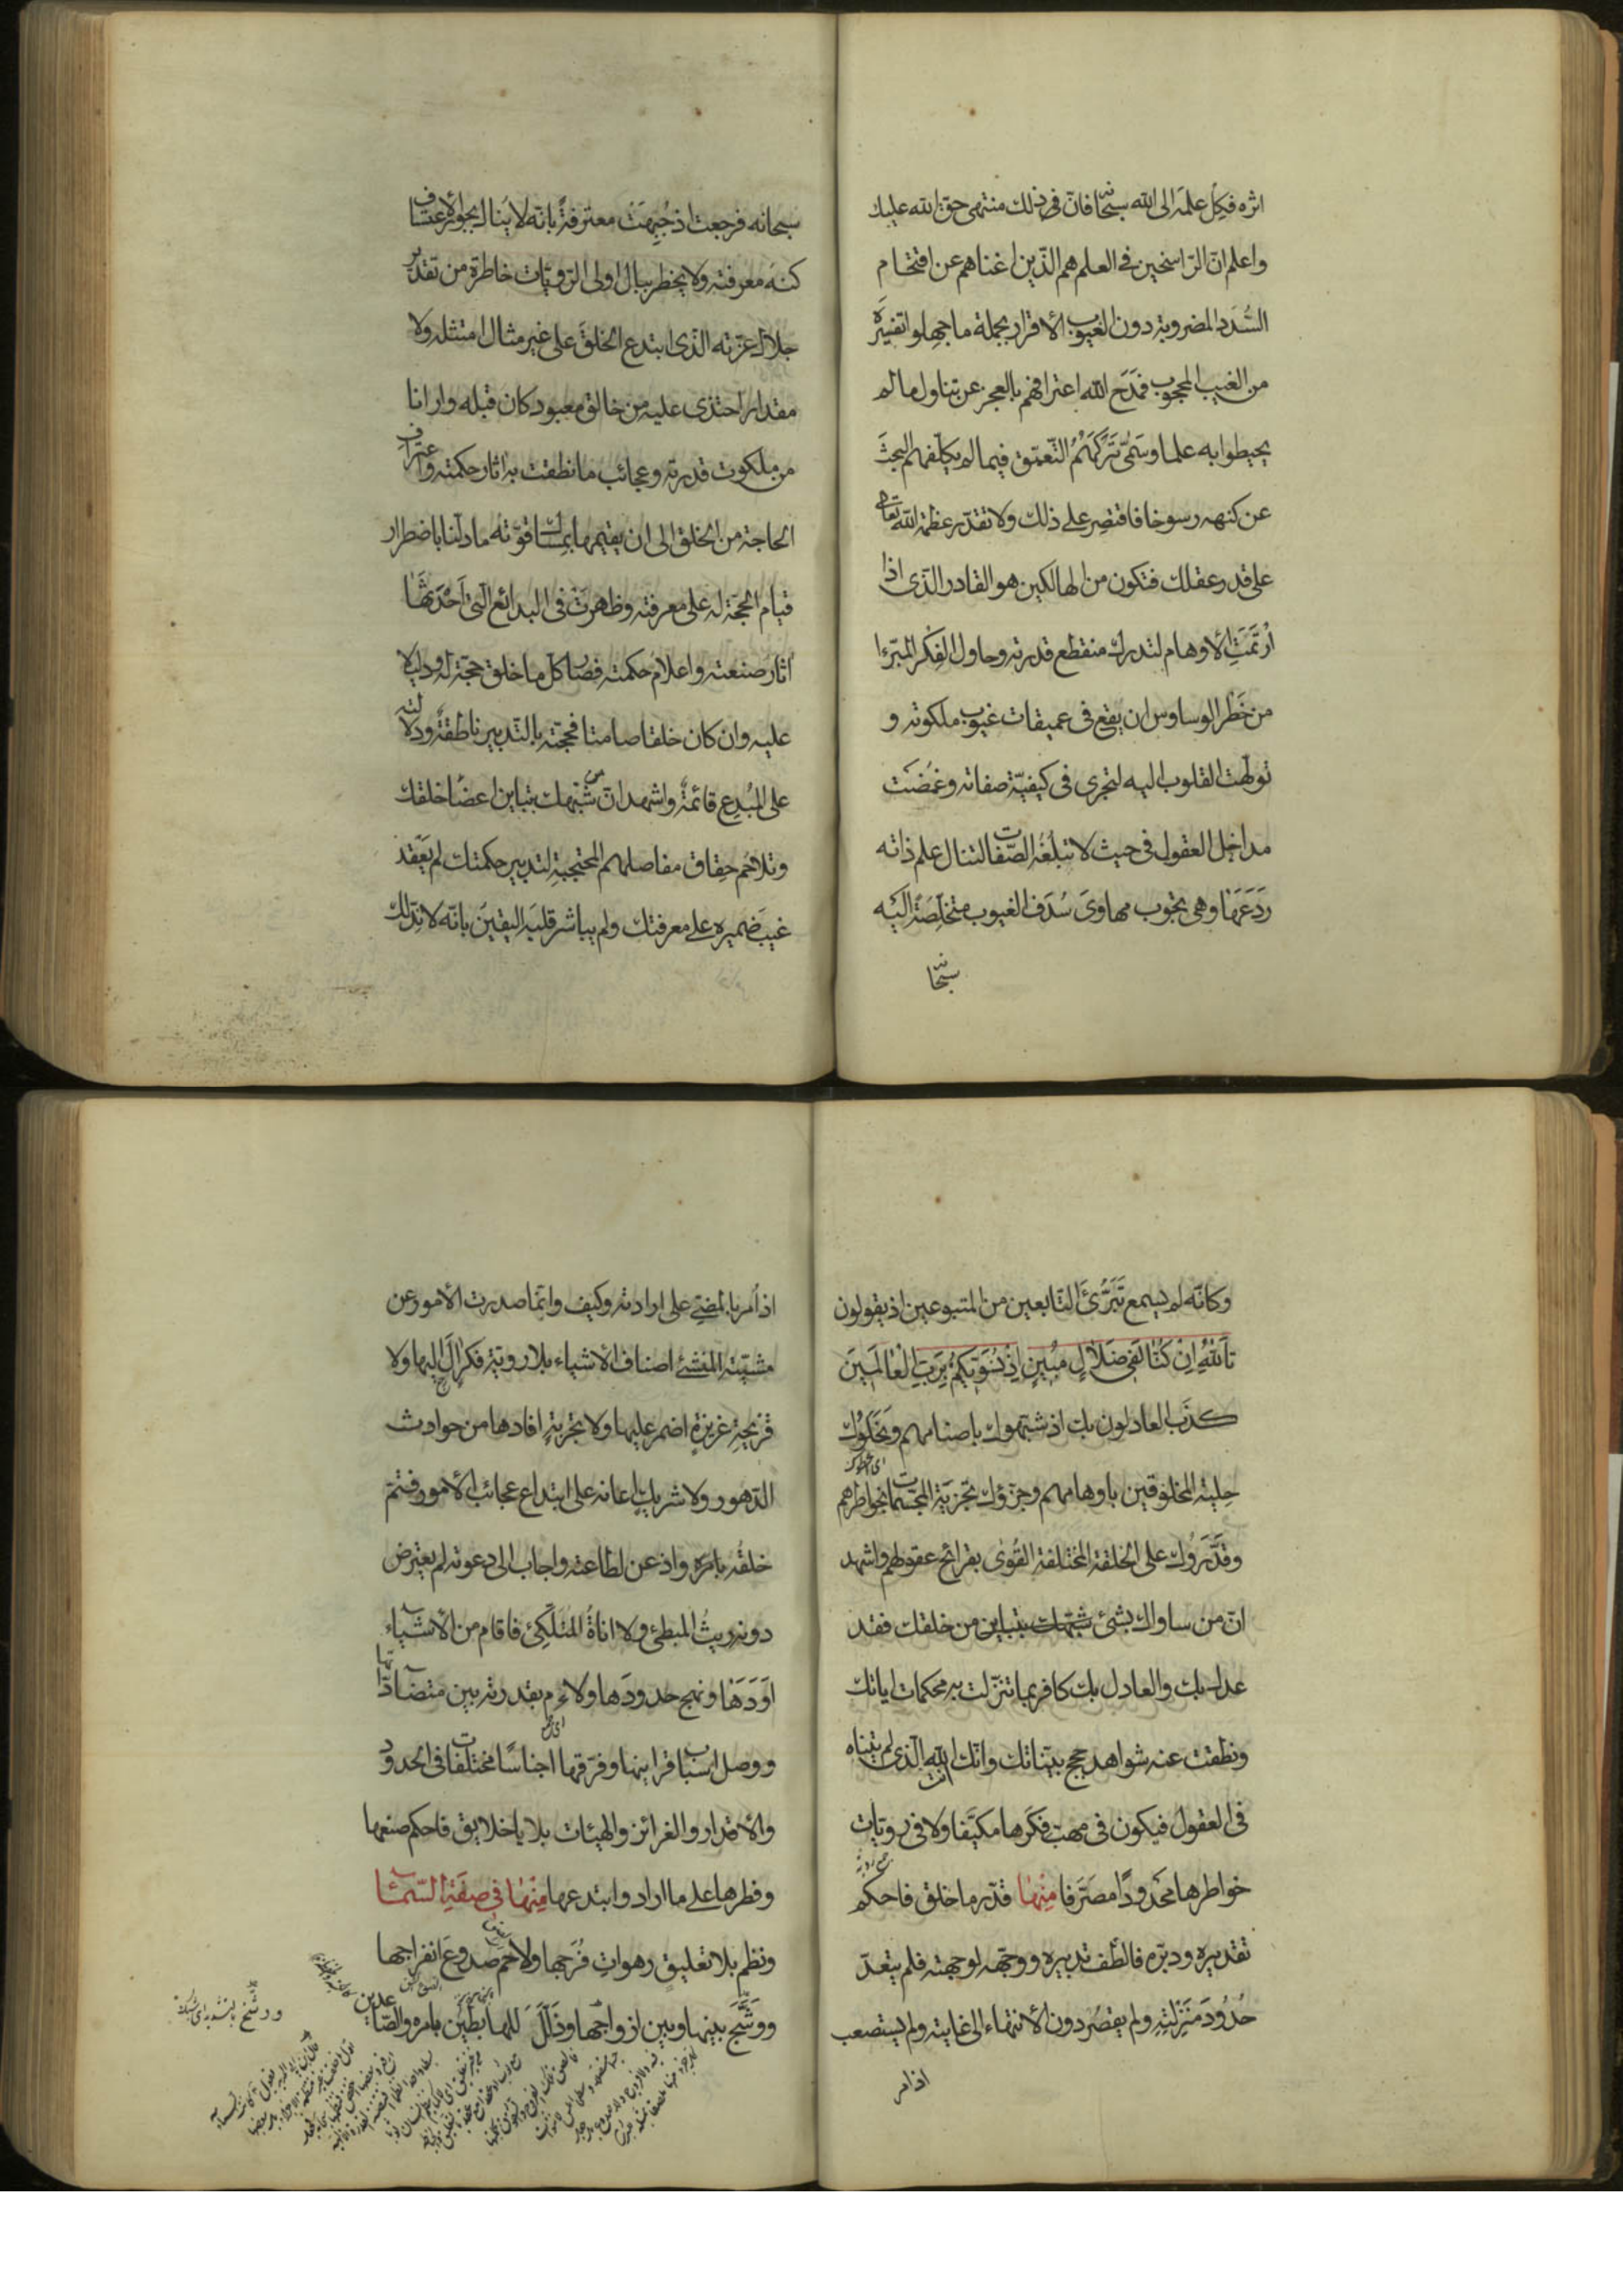 اثره فكل علمه الى الله سبحانه فان فى ذلك منتهى حق الله عليك
واعلم ان الراسخين فى العلم هم الذين اغناهم عن اقتحام
السدد المضروبة دون الغيوب الاقرار بجملة ما جهلوا تفسيره
من الغيب المحجوب فمدح الله اعترافهم بالعجز عن تناول ما لم
يحيطوا به علما وسمى تركهم التعمق فيما لم يكلفهم البحث
عن كنهه رسوخا فاقتصر على ذلك ولا تقدر عظمة الله تعالى
على قدر عقلك فتكون من الهالكين هو القادر الذى اذا
ارتمت الاوهام لتدرك منقطع قدرته وحاول الفكر المبرءا
من خطر الوساوس ان يقع فى عميقات غيوب ملكوته و
تولهت القلوب اليه لتجرى فى كيفية صفاته وغمضت
مداخل العقول فى حيث لا تبلغه الصفات لتنال علم ذاته
ردعها وهى تجوب مهاوى سدف الغيوب متخلصة اليه
سبحانه
سبحانه فرجعت اذ جبهت معترفة بانه لا ينال بجور الاعتساف
كنه معرفته ولا يخطر ببال اولى الرويات خاطرة من تقدير
جلال عزته الذى ابتدع الخلق على غير مثال امتثله ولا
مقدار احتذى عليه من خالق معبود كان قبله وارانا
من ملكوت قدرته وعجائب ما نطقت به اثار حكمته واعتراف
الحاجة من الخلق الى ان يقيمها بمساك قوته ما دلنا باضطرار
قيام الحجة له على معرفته وظهرت فى البدائع التى احدثها
اثار صنعته واعلام حكمته فصار كل ما خلق حجة له ودليلا
عليه وان كان خلقا صامتا فحجته بالتدبير ناطقة ودلالته
على المبدع قائمة واشهد ان من شبهك بتباين اعضا خلقك
وتلاحم حقاق مفاصلهم المحتجبة لتدبير حكمتك لم يعقد
غيب ضميره على معرفتك ولم يباشر قلبه اليقين بانه لا ند لك
وكانه لم يسمع تبرئ التابعين من المتبوعين اذ يقولون
تالله ان كنا لفى ضلال مبين اذ نسويكم برب العالمين
كذب العادلون بك اذ شبهوك باصنامهم ونحلوك
حلية المخلوقين باوهامهم وجزؤك تجزية المجسمات بخواطرهم
وقدروك على الخلقة المختلفة القوى بقرائح عقولهم واشهد
ان من ساواك بشئ شبهك بتباين من خلقك فقد
عدل بك والعادل بك كافر بما تنزلت به محكمات اياتك
ونطقت عنه شواهد حجج بيناتك وانك انت الله الذى لم يتناه
فى العقول فيكون فى مهب فكرها مكيفا ولا فى رويات
خواطرها محدودا مصرفا منها قدر ما خلق فاحكم
تقديره ودبره فالطف تدبيره ووجهه لوجهته فلم يتعد
حدود منزلته ولم يقصر دون الانتهاء الى غايته ولم يستصعب
اذ امر
اذ امر بالمضى على ارادته وكيف وانما صدرت الامور عن
مشيته المنشئ اصناف الاشياء بلا روية فكر ال اليها ولا
قريحة غريزة اضمر عليها ولا تجربة افادها من حوادث
الدهور ولا شريك اعانه على ابتداع عجائب الامور فتم
خلقه بامره واذعن لطاعته واجاب الى دعوته لم يعترض
دونه ريث المبطئ ولا اناة المتلكئ فاقام من الاشياء
اودها ونهج حدودها ولاءم بقدرته بين متضاداتها
ووصل اسباب قراينها وفرقها اجناسا مختلفات فى الحدود
والاقدار والغرائز والهيئات بلايا خلايق فاحكم صنعها
وفطرها على ما اراد وابتدعها منها فى صفة السماء
ونظم بلا تعليق رهوات فرجها ولاحم صدوع انفراجها
ووشج بينها وبين ازواجها وذلل للهابطين بامره والصاعدين